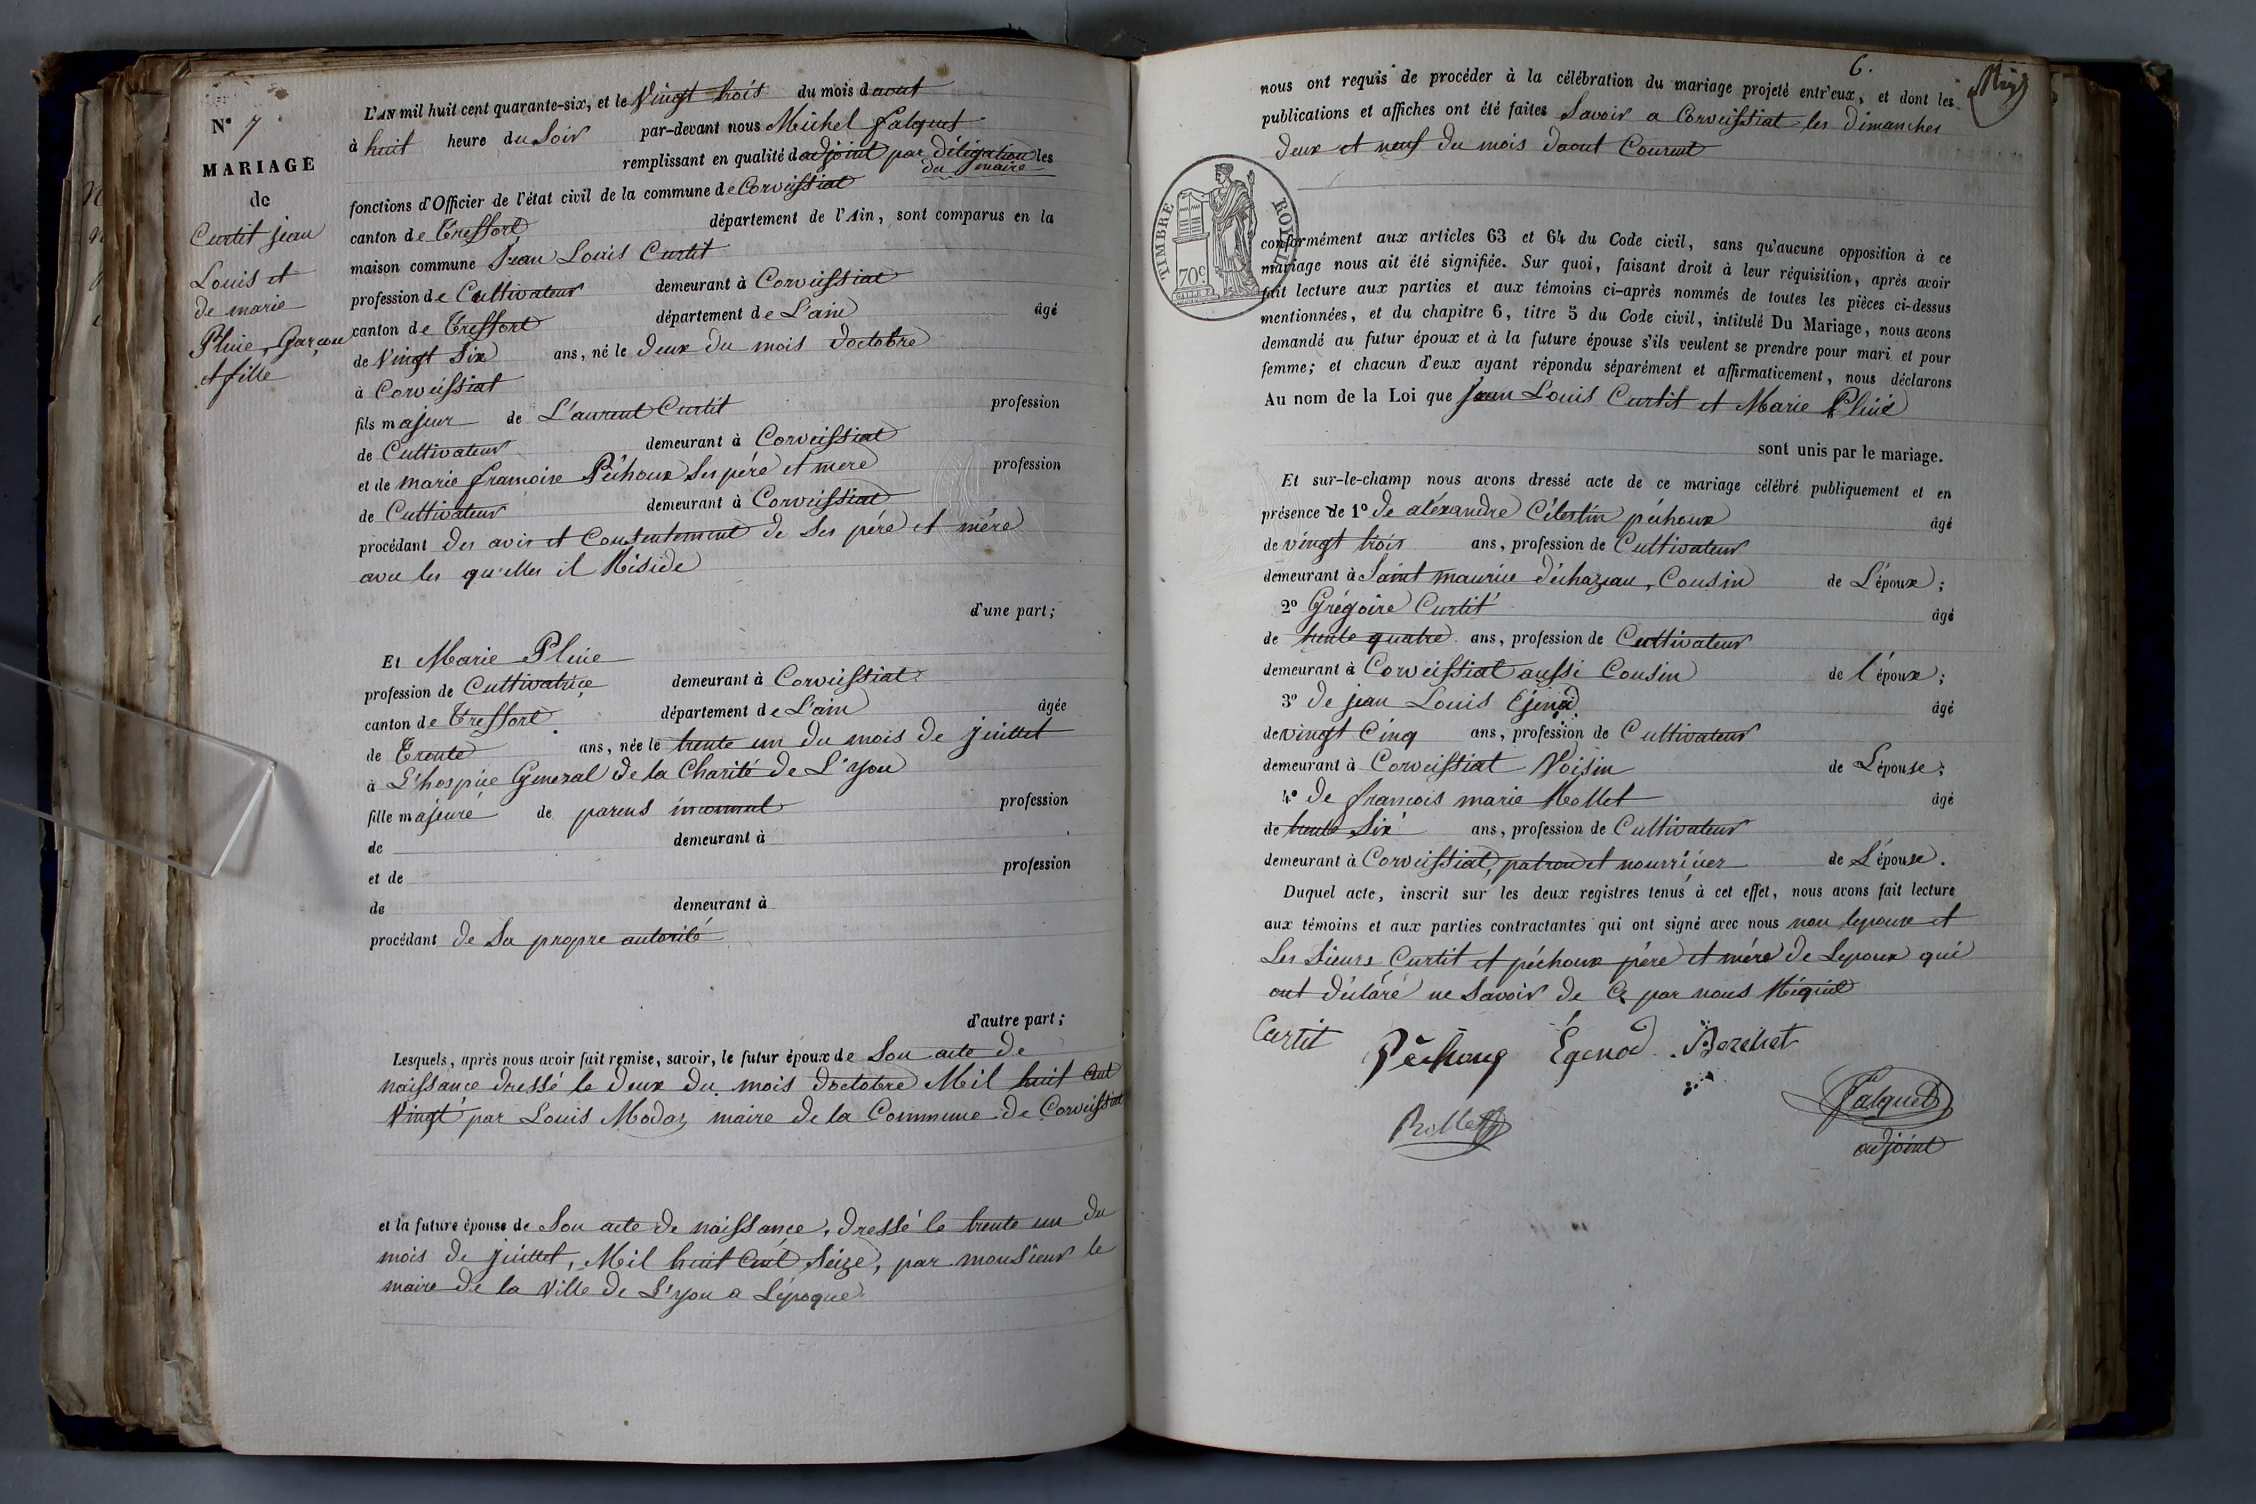 N° 7
MARIAGE
de
Curtit jean
Louis et
de marie
Pluie, garçon
et fille
L'AN mil huit cent quarante-six, et le Vingt trois du mois daout
à huit heure du Soir par-devant nous Michel falquet
remplissant en qualité dadjoint par déligation les
du maire
fonctions d'Officier de l'état civil de la commune de Corveissiat
canton de Treffort département de l'Ain, sont comparus en la
maison commune Jean Louis Curtit
profession de Cultivateur demeurant à Corveissiat
canton de Treffort département de L'ain âgé
de Vingt Six ans, né le deux du mois doctobre
à Corveissiat
fils majeur de L'aurent Curtit profession
de Cultivateur demeurant à Corveissiat
et de marie françoise Péchoux Ses père et mere profession
de Cultivateur demeurant à Corveissiat
procédant des avis et Consentement de Ses père et mére
avec les quelles il Réside
d'une part;
Et Marie Pluie
profession de Cultivatrice demeurant à Corveissiat
canton de Treffort département de L'ain âgée
de Trente ans, née le trente un du mois de juillet
à L'hospice General de la Charité de L'yon
fille majeure de parens inconnut profession
de demeurant à
et de profession
de demeurant à
procédant de Sa propre autorité
d'autre part;
Lesquels, après nous avoir fait remise, savoir, le futur époux de Son acte de
naissance dressé le deux du mois doctobre Mil huit Cent
Vingt par Louis Modas maire de la Commune de Corveissiat
et la future épouse de Son acte de naissance, dressé le trente un du
mois de juillet, Mil huit Cent Seize, par monsieur le
maire de la Ville de L'yon a L'époque
6.
nous ont requis de procéder à la célébration du mariage projeté entr'eux, et dont les
publications et affiches ont été faites Savoir a Corveissiat les dimanches
deux et neuf du mois daout Courent
TIMBRE ROYAL
70c
conformément aux articles 63 et 64 du Code civil, sans qu'aucune opposition à ce
mariage nous ait été signifiée. Sur quoi, faisant droit à leur réquisition, après avoir
fait lecture aux parties et aux témoins ci-après nommés de toutes les pièces ci-dessus
mentionnées, et du chapitre 6, titre 5 du Code civil, intitulé Du Mariage, nous avons
demandé au futur époux et à la future épouse s'ils veulent se prendre pour mari et pour
femme; et chacun d'eux ayant répondu séparément et affirmativement, nous déclarons
Au nom de la Loi que Jean Louis Curtit et Marie Pluie
sont unis par le mariage.
Et sur-le-champ nous avons dressé acte de ce mariage célébré publiquement et en
présence de 1° de aléxandre Célestin péchoux âgé
de vingt trois ans, profession de Cultivateur
demeurant à Saint maurice déchazeau, Cousin de L'époux;
2° Grégoire Curtit âgé
de trente quatre ans, profession de Cultivateur
demeurant à Corveissiat aussi Cousin de l'époux;
3° de jean Louis Ejenod âgé
de vingt Cinq ans, profession de Cultivateur
demeurant à Corveissiat Voisin de L'épouse;
4° de francois marie Rollet âgé
de trente Six ans, profession de Cultivateur
demeurant à Corveissiat, patron et nourricier de L'épouse.
Duquel acte, inscrit sur les deux registres tenus à cet effet, nous avons fait lecture
aux témoins et aux parties contractantes qui ont signé avec nous non lepoux et
Les Sieurs Curtit et péchoux père et mére de Lepoux qui
ont déclaré ne Savoir de Ce par nous Réquit
Curtit Péchoux Égenod Borchat
Rollet
Falquet
adjoint